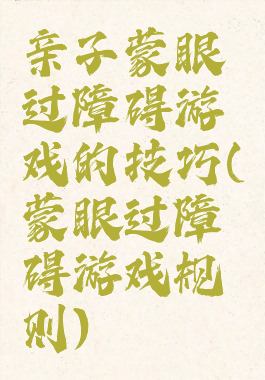 亲子蒙眼
过障碍游
戏的技巧(
蒙眼过障
碍游戏规
则)